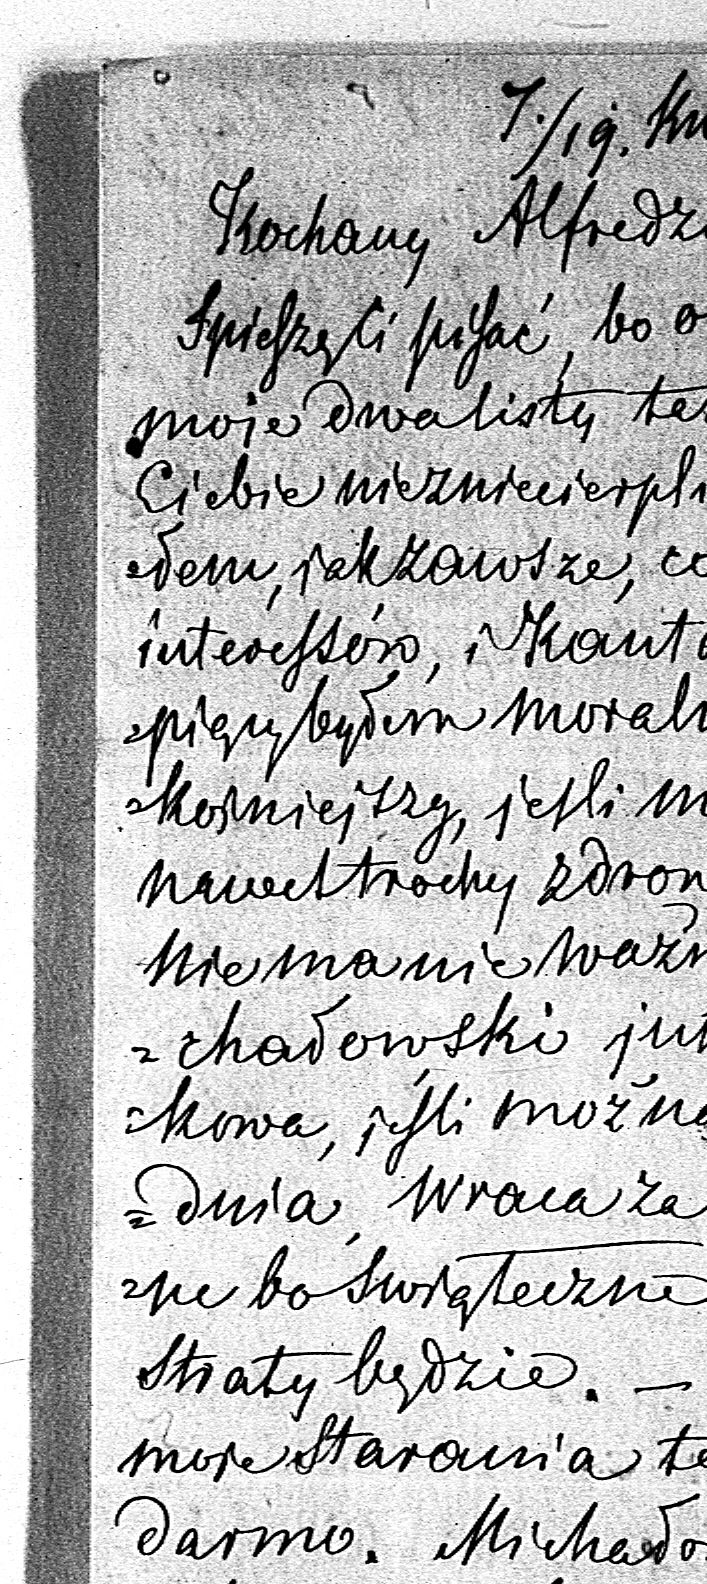 7./19. Kw
Kochany Alfredzi
Spieszę Ci pisać, bo o
moje dwa listy te
Ciebie niezniecierpli
=dem, jak zawsze, co
interessów, i Kanto
=pięgybyłem moraln
=kojniejszy, jeśli m
nawet trochy zdrow
Niema nic ważn
=chałowski jut
=kowa, jeśli można
=dnia, wraca za
=ne bo świąteczne
straty będzie. —
moje starania te
darmo. Michało